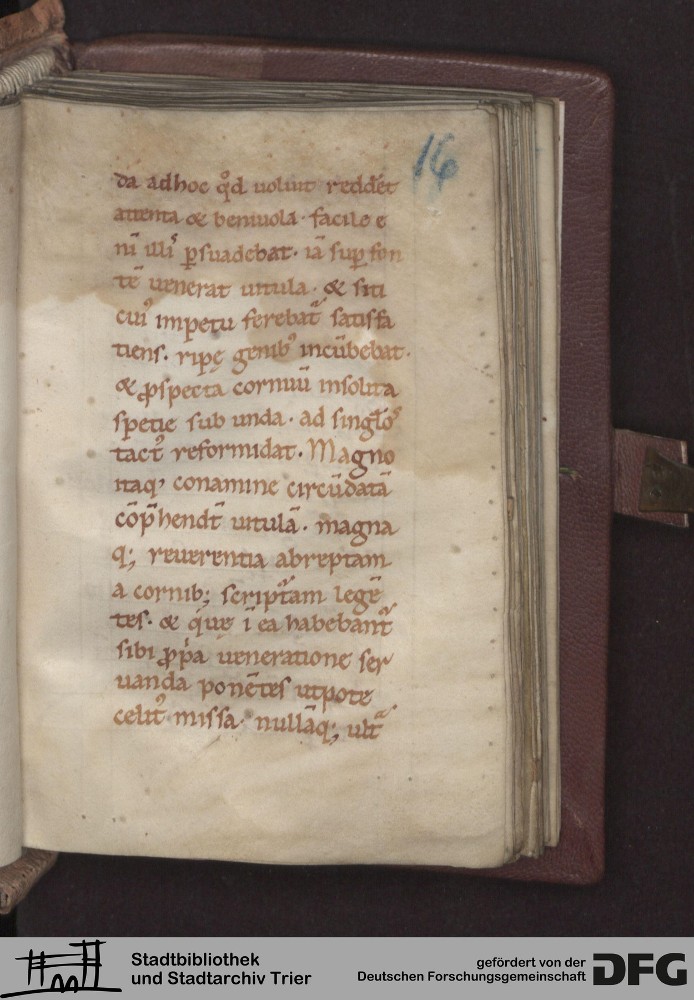 16
da adhoc qd̊ uoluit reddēt
attenta & beniuola· facile e
ni̅ illiˢ p̱suadebat· ia̅ sup̱ fon
te̅ uenerat uitula· & siti
cuiꝰ impetu ferebat᷑ satisfa
tiens. ripę genibꝰ incu̅bebat·
& ꝓspecta cornuu̅ insolita
spetie sub unda· ad singl̅oꝰ
tactꝰ reformidat. Magno
itaqꝫ conamine circu̅data̅
co̅p̅hendt̅ uitula̅· magna
q; reuerentia abreptam
a cornib; scriptᷓam lege̅
tes· & quę i̅ ea habebant᷑
sibi ꝓp̍a ueneratione ser
uanda pone̅tes utpote
celitꝰ missa· nulla̅q; ult᷑
Stadtbibliothek
und Stadtarchiv Trier
gefördert von der
Deutschen Forschungsgemeinschaft
DFG